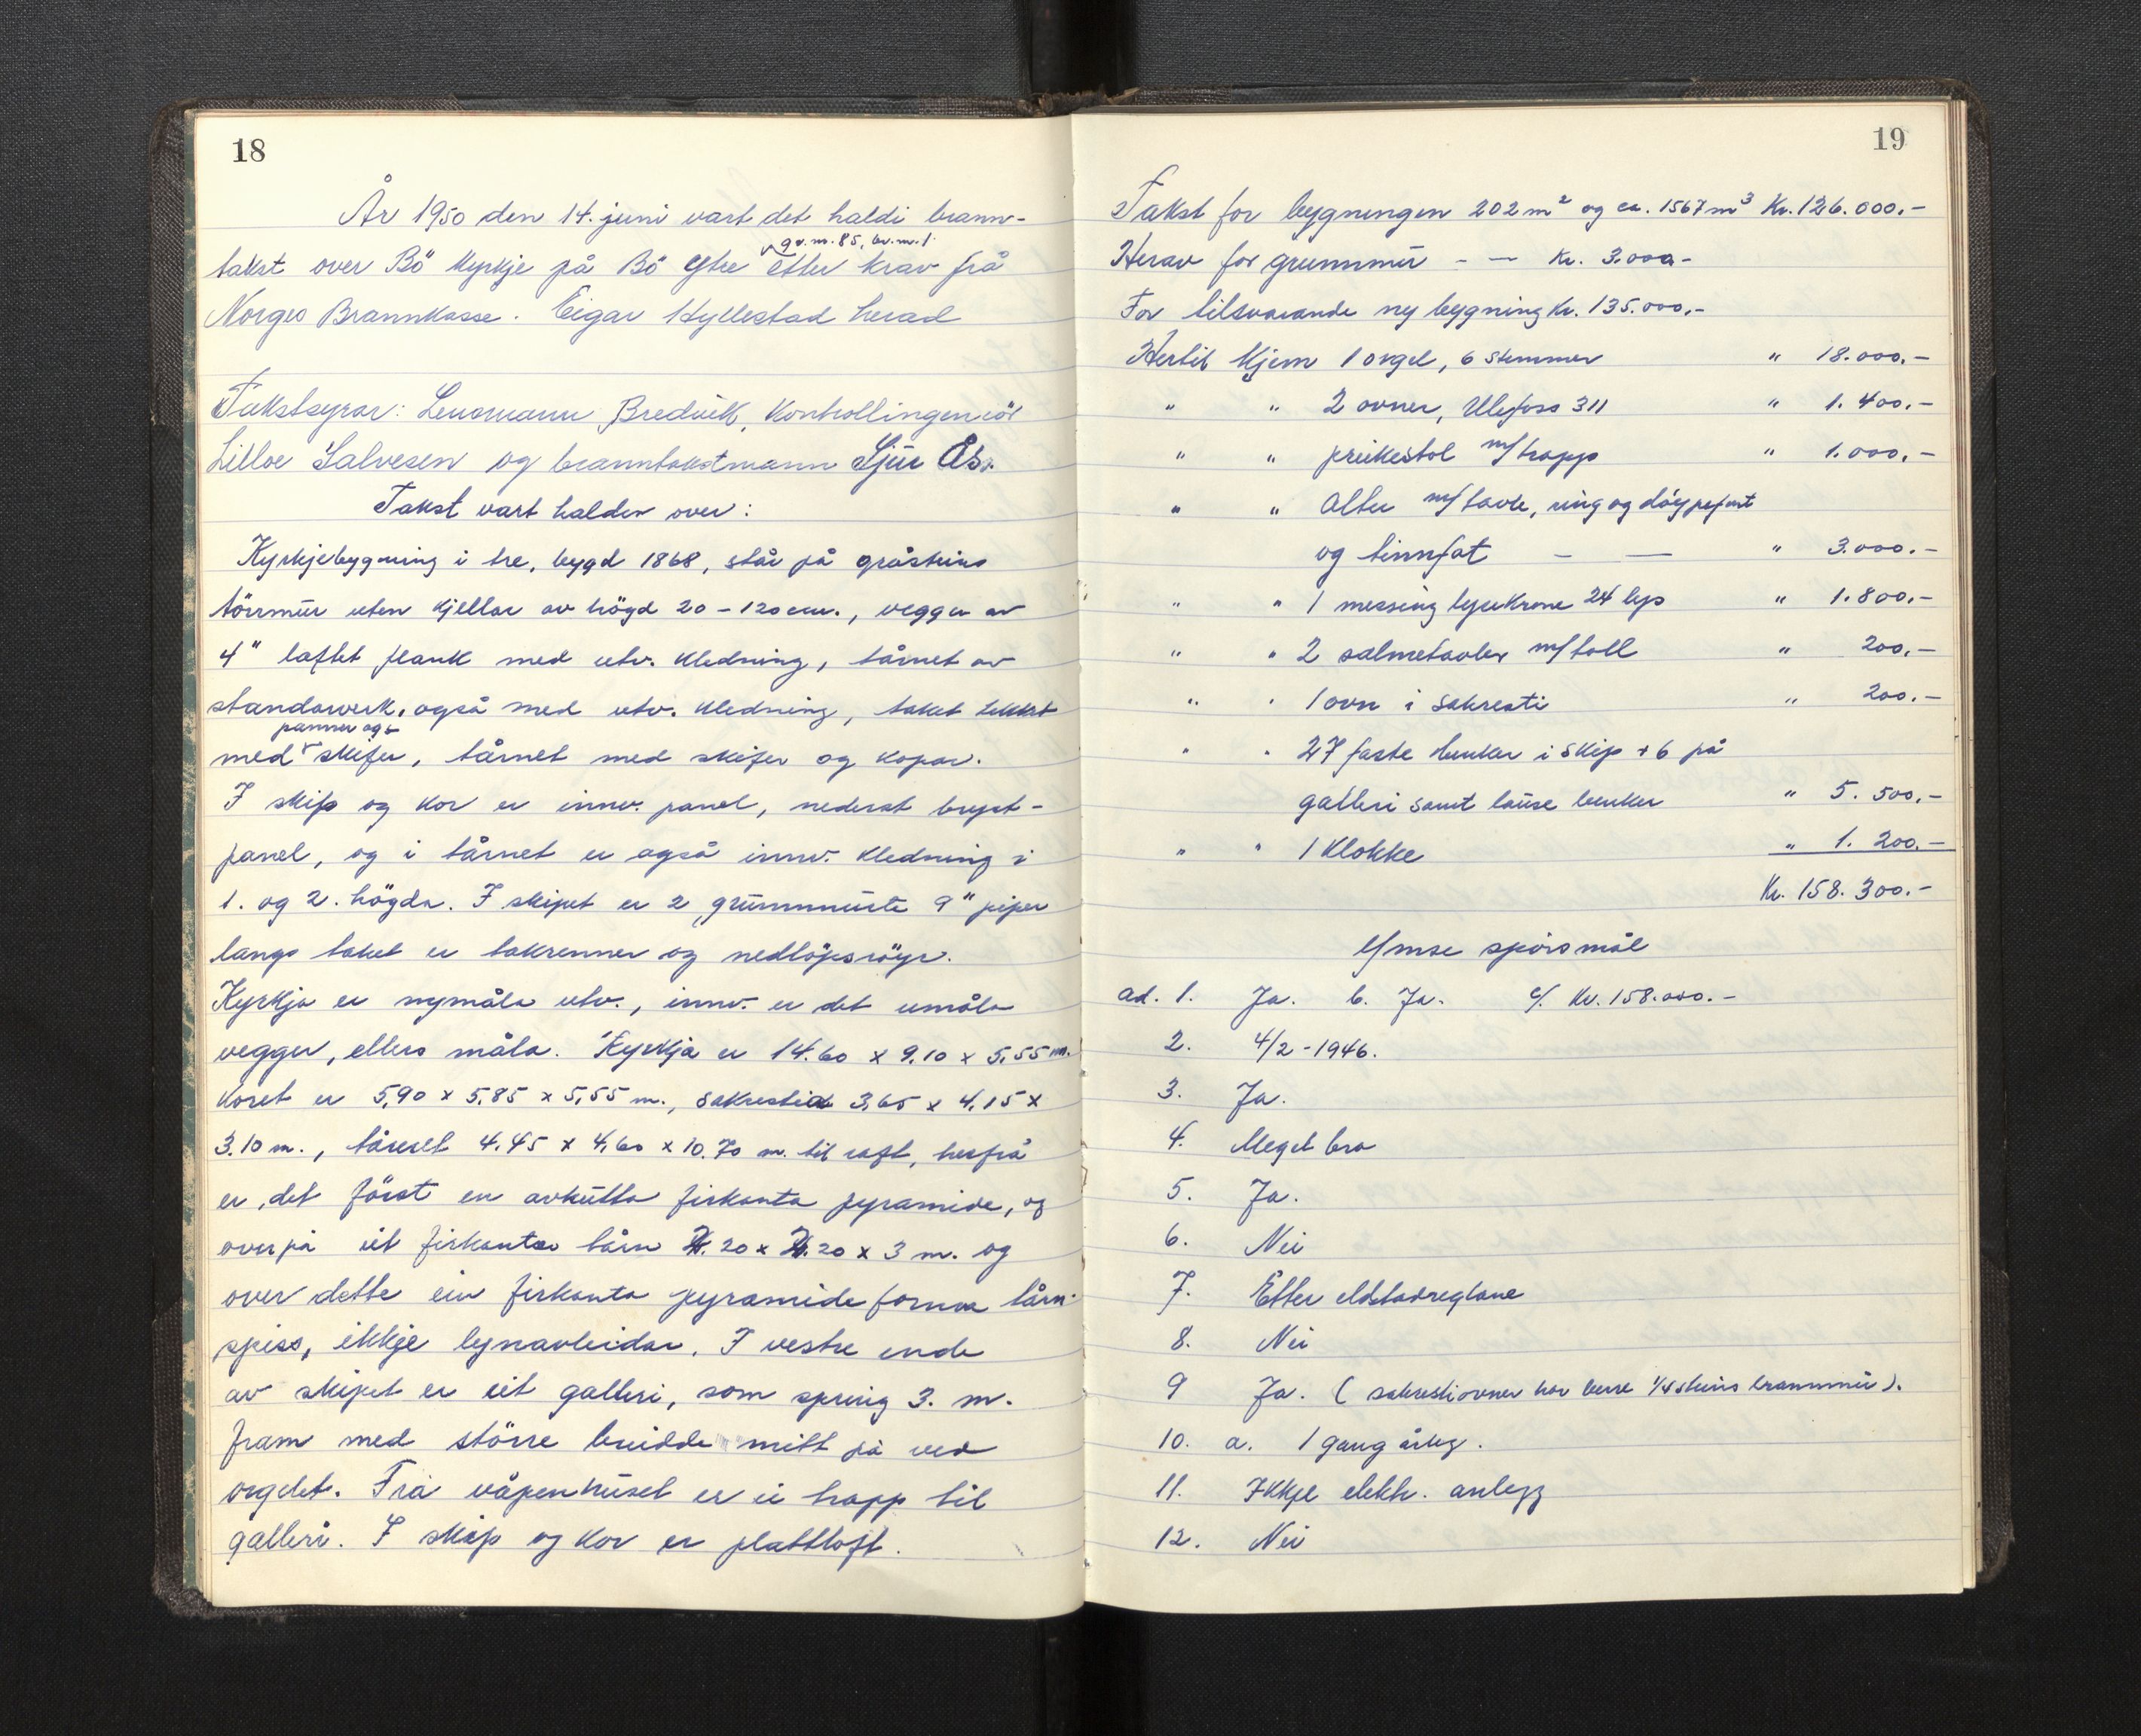 18
År 1950 den 14. juni vart det haldi brann-
gr.nr. 85, br.nr. 1.
takst over Bö kyrkje på Bö Ytre etter krav frå
Norges Brannkasse. Eigar Hyllestad herad
Takstsyrar: Lensmann Bredvik, Kontrollingeniör
Lilloe Salvesen og branntakstmann Sjur Ås.
Takst vart halden over:
Kyrkjebygning i tre, bygd 1868, står på gråsteins
törrmur uten kjellar av högd 20 – 120 cm., vegger av
4" laftet plank med utv. kledning, tårnet av
standarverk, også med utv. kledning, taket tekket
panner og
med skifer, tårnet med skifer og kopar.
I skip og kor er innv. panel, nederst bryst-
panel, og i tårnet er også innv. kledning i
1. og 2. högda. I skipet er 2 grunnmurte 9" piper
langs taket er takrenner og nedlöpsröyr.
Kyrkja er nymåla utv., innv. er det umåla
vegger, ellers måla. Kyrkja er 14.60 x 9.10 x 5.55 m.
Koret er 5,90 x 5,85 x 5,55 m., sakristia 3,65 x 4,15 x
3.10 m., tårnet 4.45 x 4,60 x 10.70 m. til raft, herfrå
er det först en avkutta firkanta pyramide, og
over på eit firkanta tårn .20 x .20 x 3 m. og
over dette ein firkanta pyramideforma tårn-
spiss, ikkje lynavleidar. I vestre ende
av skipet er eit galleri, som spring 3. m.
fram med större breidde mitt på ved
orgelet. Frå våpenhuset er ei trapp til
galleri. I skip og kor er plattloft.
19
Takst for bygningen 202 m² og ca. 1567 m³ Kr. 126.000.–
Herav for grunnmur – — Kr. 3.000.–
For tilsvarande ny bygning Kr. 135.000.–
Hertil kjem 1 orgel, 6 stemmer " 18.000.–
" " 2 ovner, Ulefoss 311 " 1.400.–
" " preikestol m/trapp " 1.000.–
" " Alter m/tavle, ring og döypefont
og tinnfat – — " 3.000.–
" " 1 messing lysekrone 24 lys " 1.800.–
" " 2 salmetavler m/tall " 200.–
" " 1 ovn i sakresti " 200.–
" " 27 faste benker i skip + 6 på
galleri samt lause benker " 5.500.–
" " 1 Klokke " 1.200.–
Kr. 158.300.–
Ymse spörsmål
ad. 1. Ja. b. Ja. c/. Kr. 158.000.–
2. 4/2 - 1946.
3. Ja.
4. Meget bra
5. Ja.
6. Nei
7. Etter eldstadreglane
8. Nei
9 Ja. ( sakrestiovnen har berre 1/4 steins brannmur).
10. a. 1 gang årleg.
11. Ikkje elektr. anlegg
12. Nei